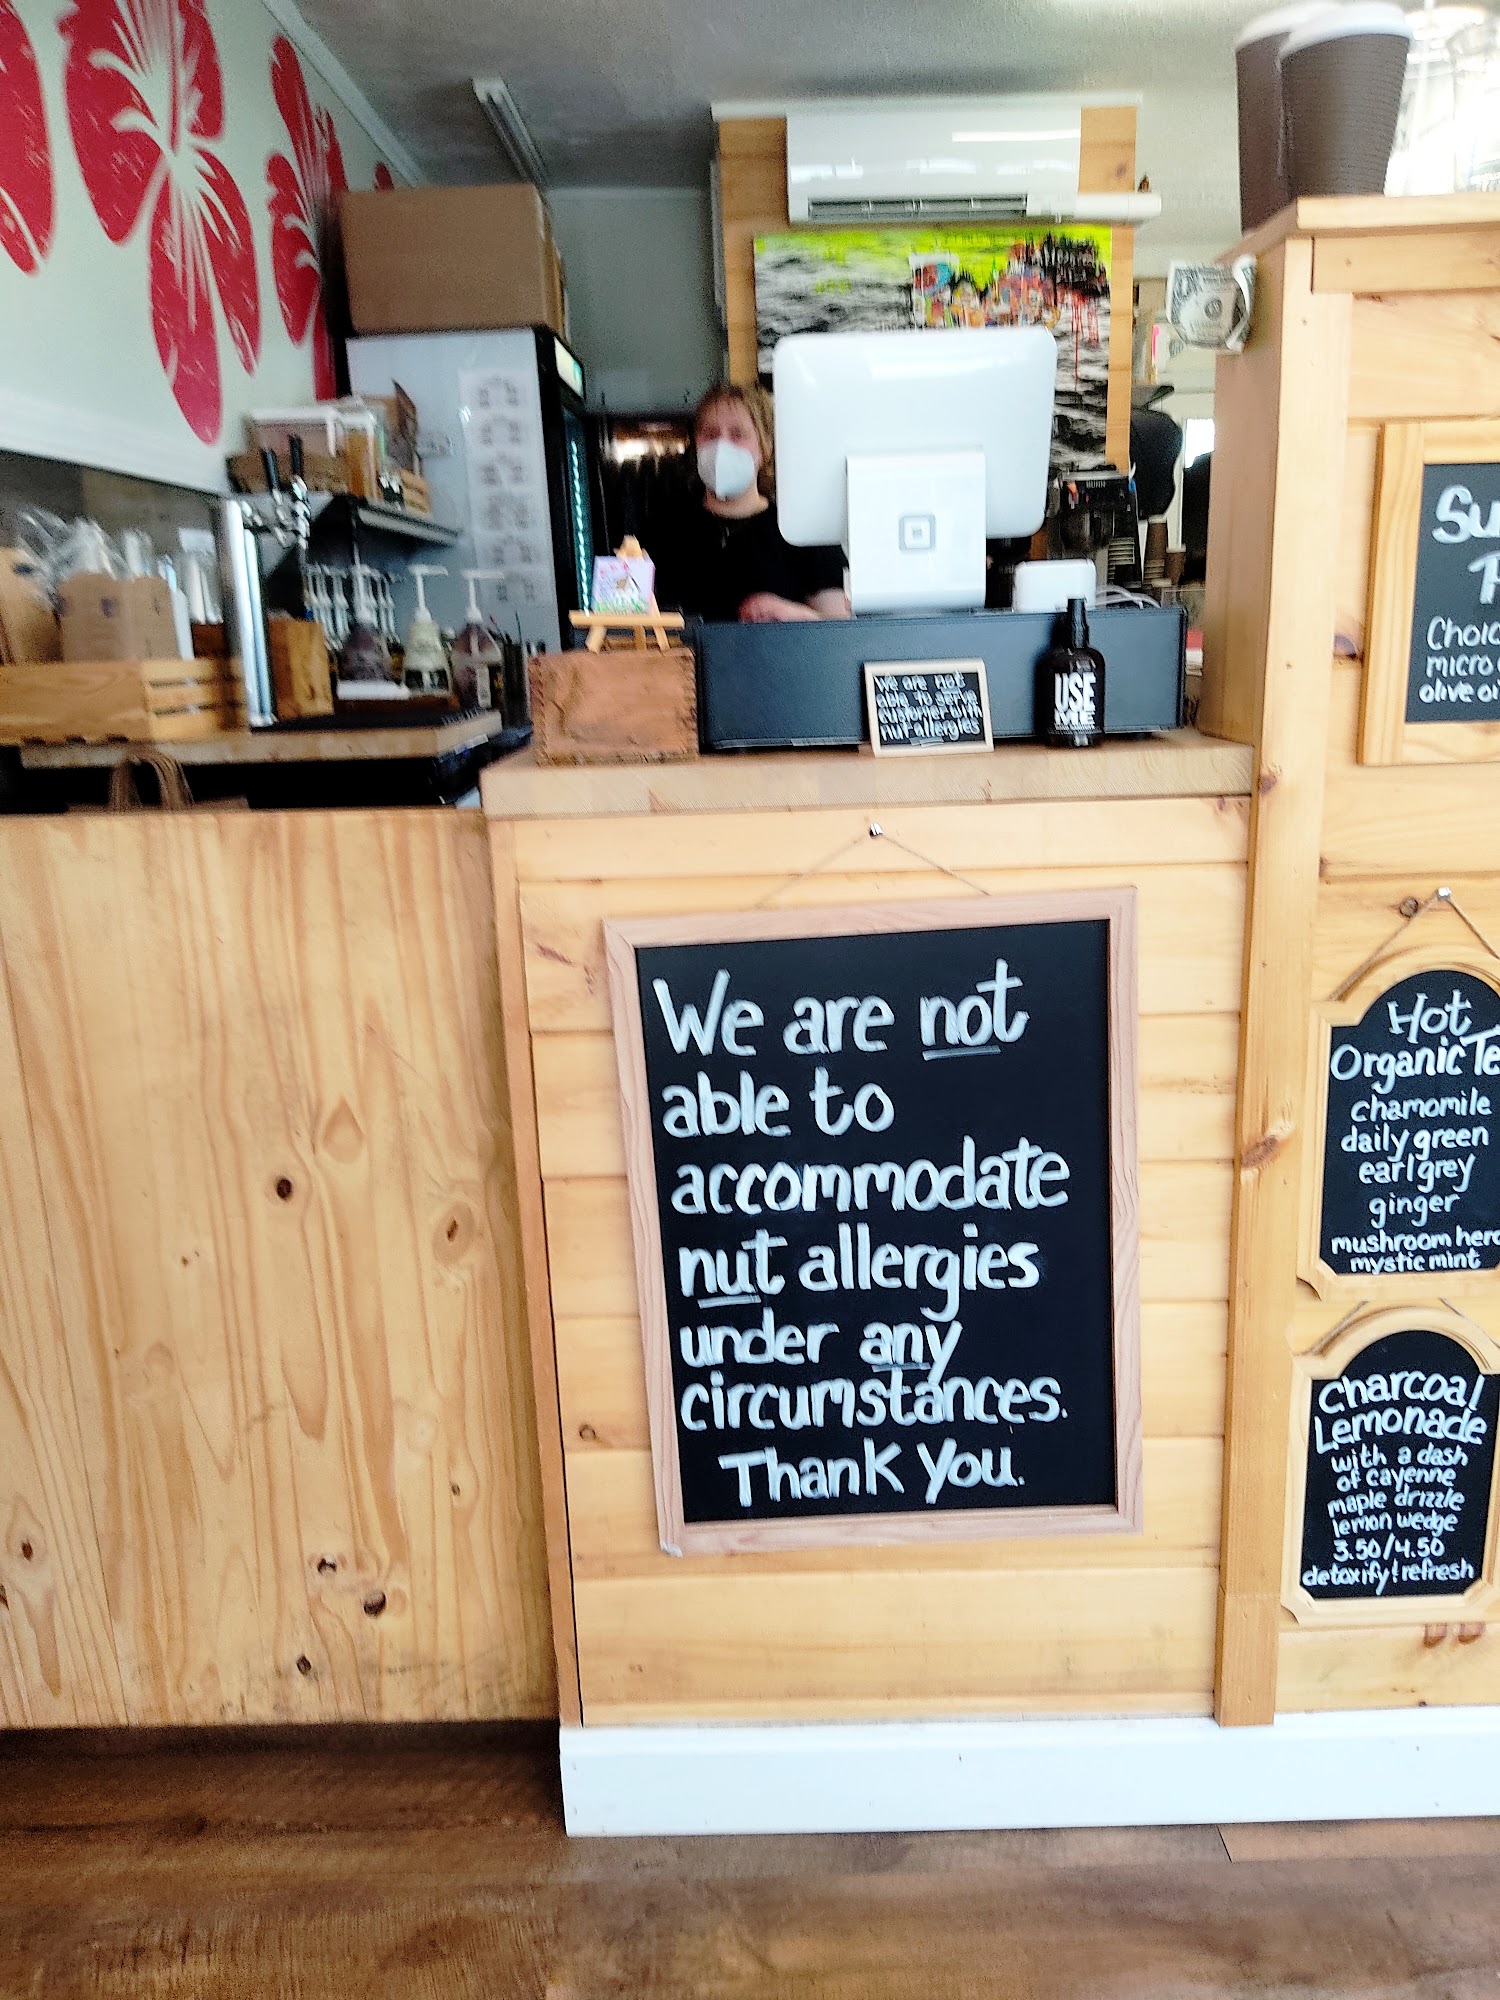 We are not
able to serve
customers with
nut allergies
USE
ME
We are not
able to
accommodate
nut allergies
under any
circumstances.
Thank You.
Su
Choic
micro
olive oi
Hot
Organic Te
chamomile
daily green
earl grey
ginger
mushroom hero
mystic mint
Charcoal
Lemonade
with a dash
of cayenne
maple drizzle
lemon wedge
3.50/4.50
detoxify & refresh